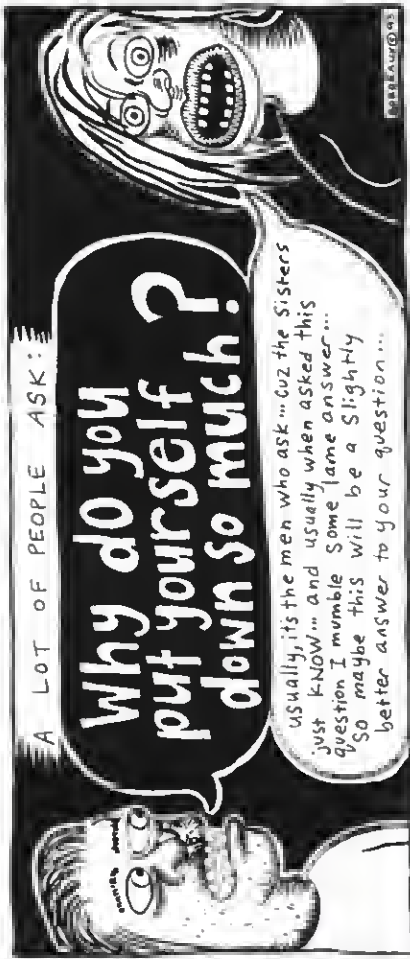 A LOT OF PEOPLE ASK:
Why do you
put yourself
down so much?
usually, its the men who ask... cuz the Sisters
just KNOW... and usually when asked this
question I mumble Some lame answer...
So maybe this will be a Slightly
better answer to your question...